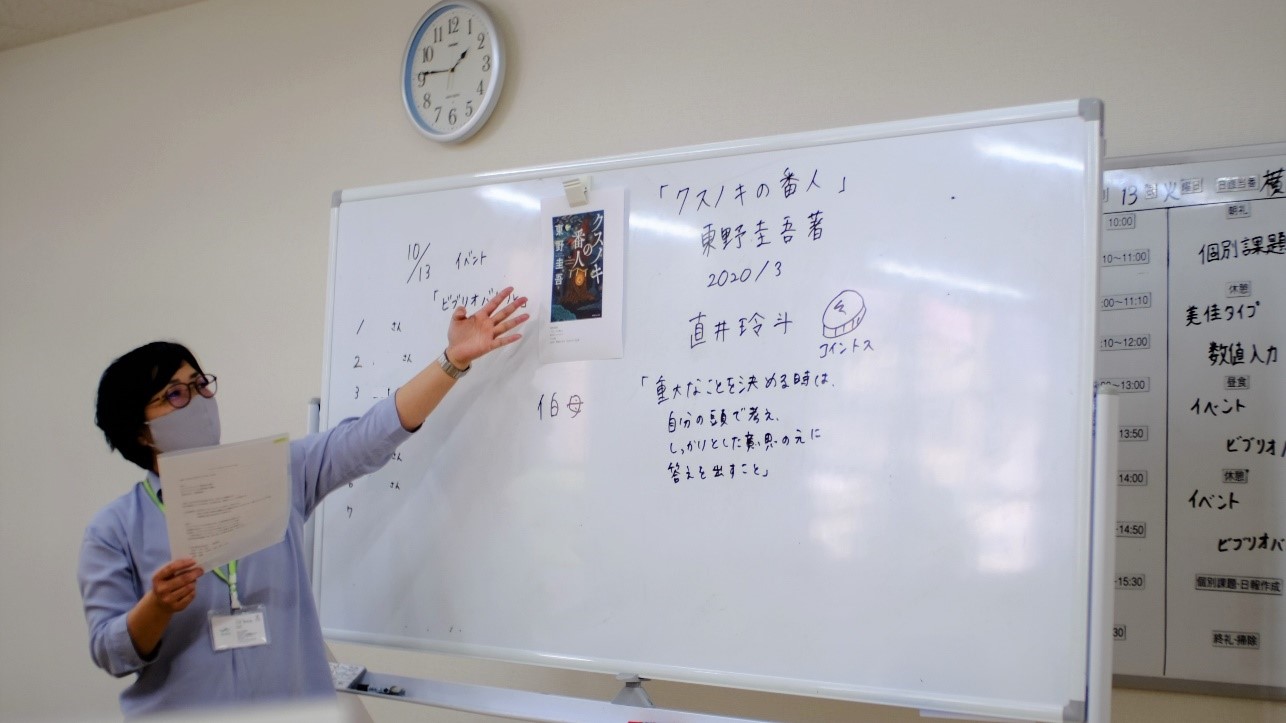 12
1
2
3
4
5
6
7
8
9
10
11
10/13 イベント
「ビブリオバ
1 さん
2. さん
3
さん
さん
7
クスノキの番人
東野圭吾
伯母
「クスノキの番人」
東野圭吾著
2020/3
直井玲斗
コイントス
「重大なことを決める時は、
自分の頭で考え、
しっかりとした意思のえに
答えを出すこと」
13日 火 曜日 日直当番
10:00 朝礼
10~11:00 個別課題
:00~11:10 休憩
美佳タイプ
:10~12:00 数値入力
:00~13:00 昼食
イベント
13:50 ビブリオバ
14:00 休憩
イベント
14:50 ビブリオバ
15:30 個別課題・日報作成
30 終礼・掃除